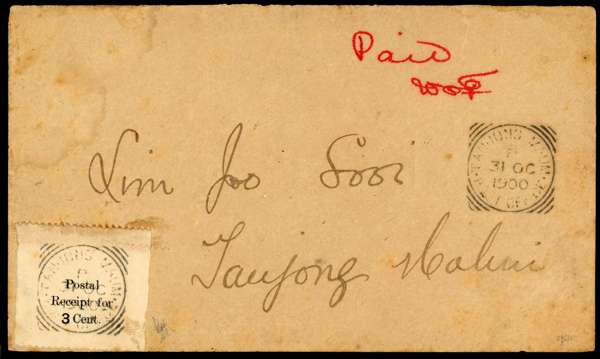 Paid
Lim Joo Sooi
Tanjong Malim
TANJONG MALIM
31 OC
1900
TANJONG MALIM
Postal
Receipt for
3 Cent.